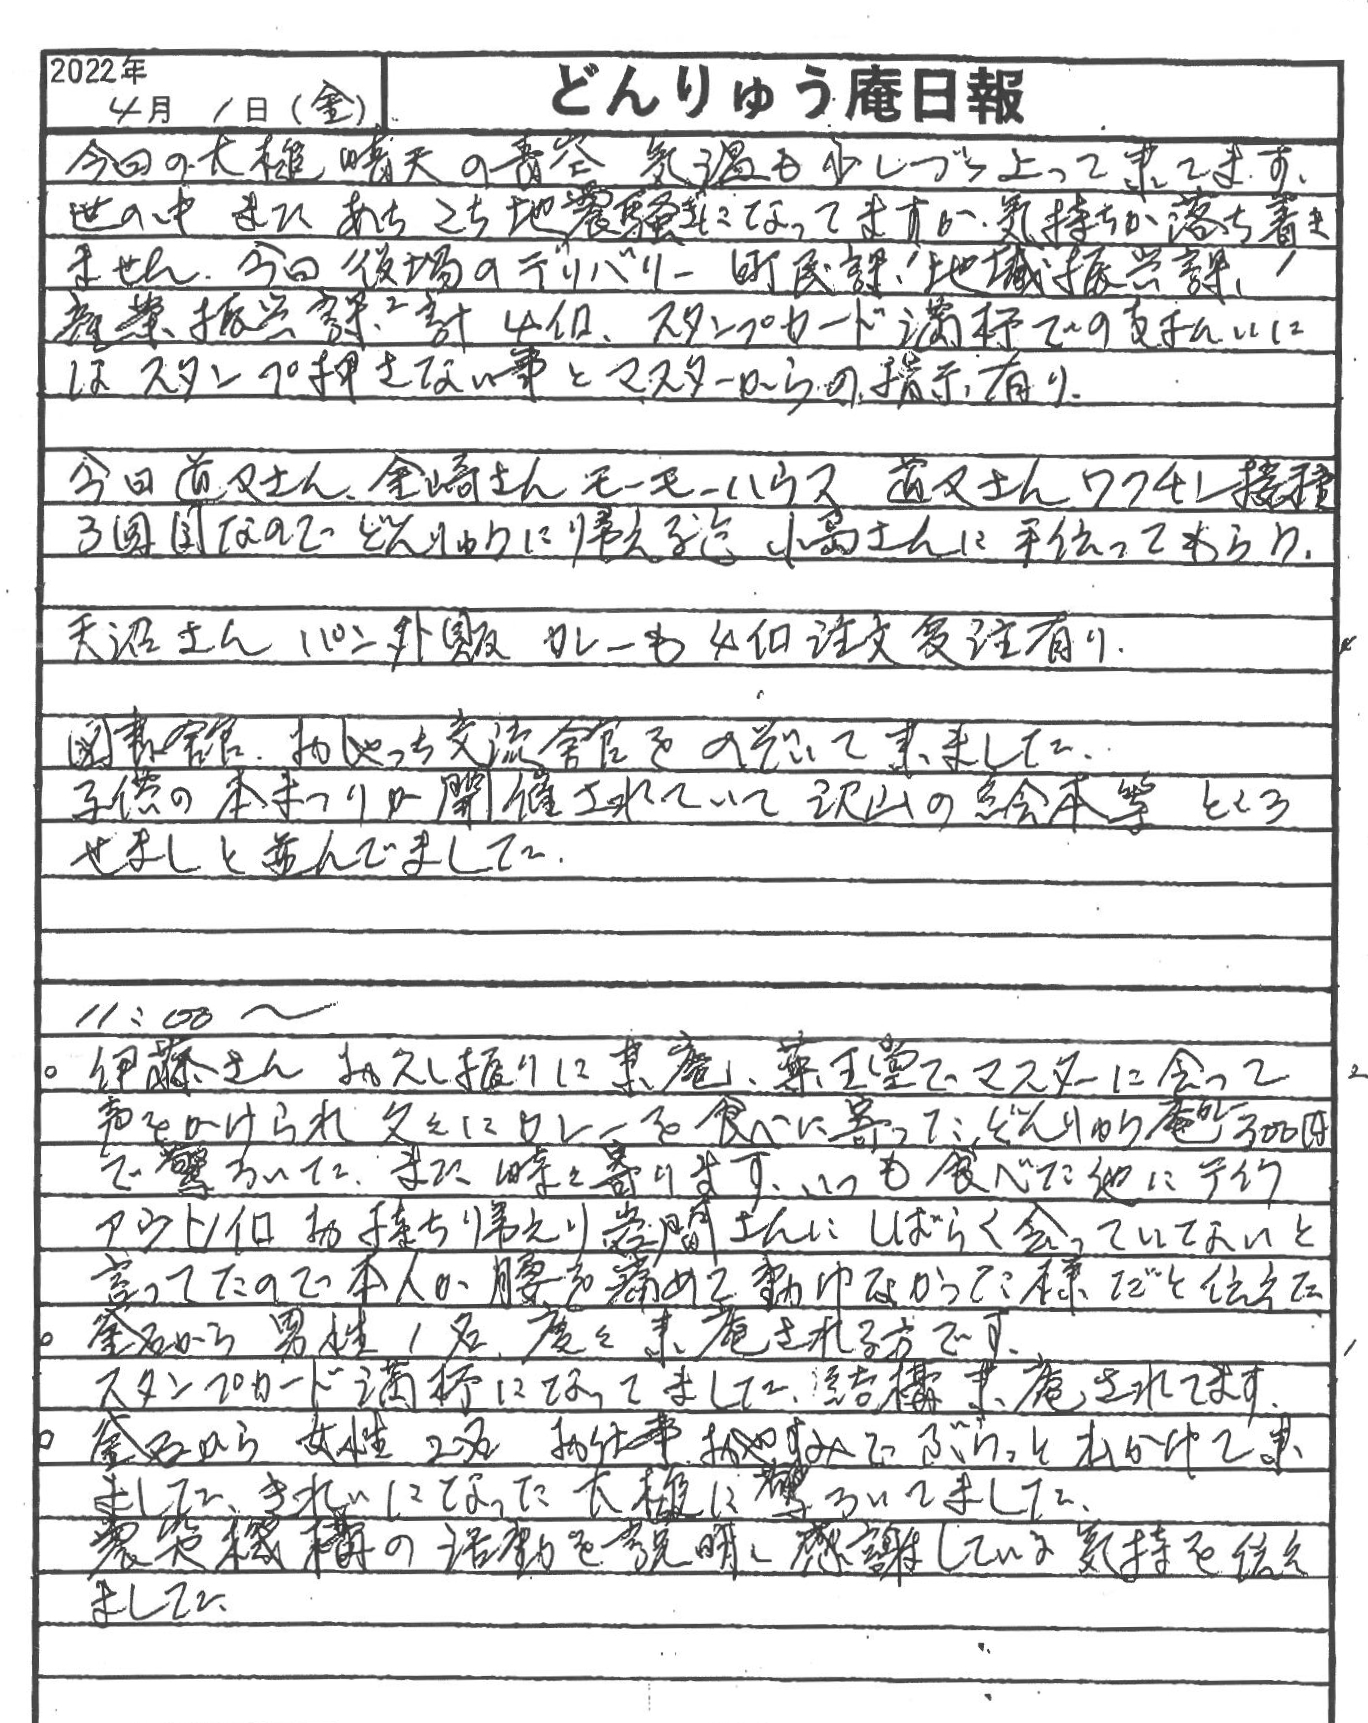 2022年
4月 1日(金)
どんりゅう庵日報
今日の大雄 晴天の青空 気温も少しづつ上って来てます、
世の中 まだ あちこち地震騒ぎになってますが、気持ちが落ち着き
ません、今日役場のデリバリー 町民課1 地域振興課1
産業振興課2 計4個、スタンプカード満杯での
は スタンプ押さない事とマスターからの指示有り、
今日 さん、金崎さん モーモーハウス さんワクチン接種
3回目なので どんりゅうに帰える迄 小島さんに手伝ってもらう、
天沼さん パン外販 カレーも4個注文受注有り、
図書館、おしゃっち交流館をのぞいて来ました、
子供の本まつりが開催されていて沢山の絵本等 ところ
せましと並んでました、
11:00〜
○ 伊藤さん お久し振りに来庵、薬王堂でマスターに会って
声をかけられ 久々にカレーを食べに寄った、どんりゅう庵カレー300円
で驚ろいた、また時々寄ります、いつも食べた他にテイク
アウト1個お持ち帰えり 岩間さんにしばらく会っていてないと
言ってたので本人が腰を痛めて動けなかった様だと伝えた
○ 釜石から 男性1名、度々来庵される方です、
スタンプカード満杯になってました、結構来庵されてます、
○ 釜石から 女性2名 お仕事お休みでぶらっとおかけて来
ました、きれいになった大雄に驚ろいてました、
農災機構の活動を説明し感謝している気持を伝え
ました、